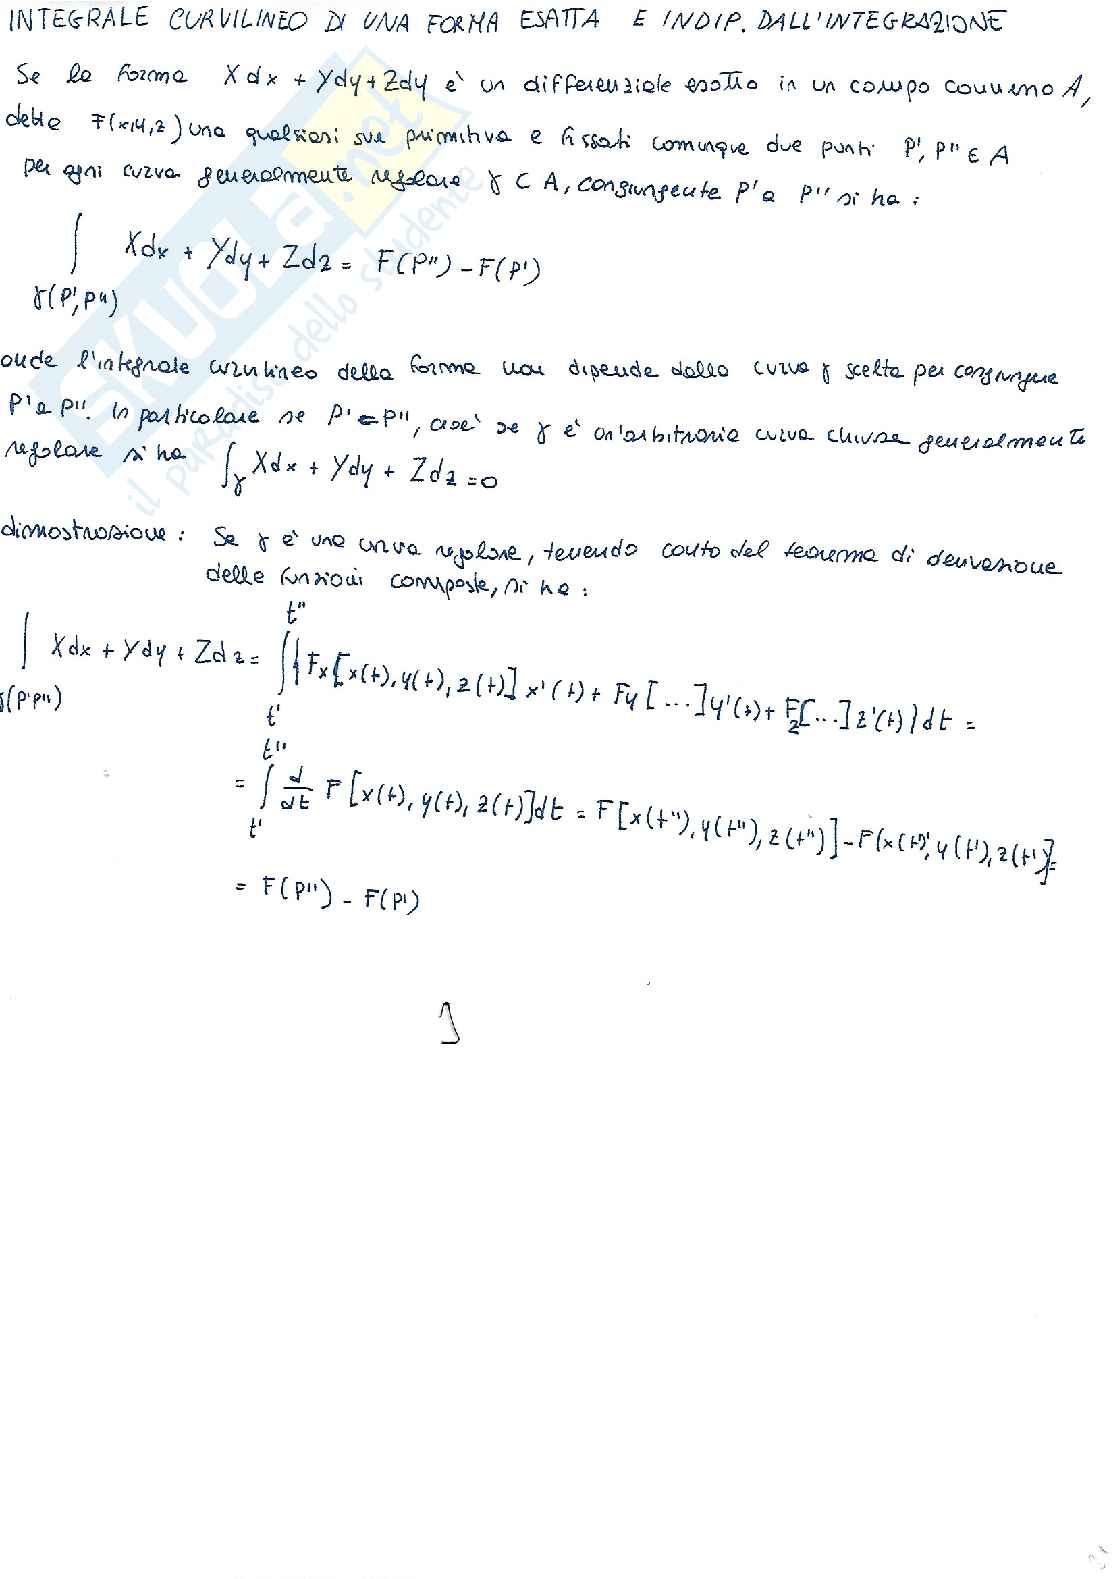 INTEGRALE CURVILINEO DI UNA FORMA ESATTA E INDIP. DALL'INTEGRAZIONE
Se la forma Xdx + Ydy + Zdy è un differenziale esatto in un campo connesso A,
detta F(x,y,z) una qualsiasi sua primitiva e fissati comunque due punti P', P'' ∈ A
per ogni curva generalmente regolare γ ⊂ A, congiungente P' a P'' si ha :
∫ Xdx + Ydy + Zdz = F(P'') - F(P')
γ(P',P'')
onde l'integrale curvilineo della forma non dipende dalla curva γ scelta per congiungere
P' a P''. In particolare se P' = P'', cioè se γ è un'arbitraria curva chiusa generalmente
regolare si ha ∫γ Xdx + Ydy + Zdz = 0
dimostrazione : Se γ è una curva regolare, tenendo conto del teorema di derivazione
delle funzioni composte, si ha :
t''
∫ Xdx + Ydy + Zdz = ∫{Fx[x(t), y(t), z(t)] x'(t) + Fy[...]y'(t) + Fz[...]z'(t)}dt =
γ(P'P'') t'
t''
= ∫ d/dt F[x(t), y(t), z(t)]dt = F[x(t''), y(t''), z(t'')] - F(x(t'), y(t'), z(t')] =
t'
= F(P'') - F(P')
SKUOLA.net
il paradiso dello studente